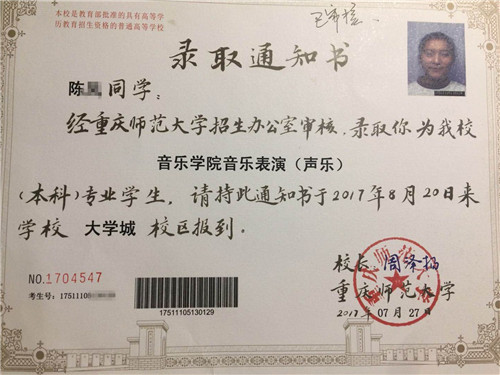 本校是教育部批准的具有高等学
历教育招生资格的普通高等学校
已审核
录取通知书
陈 同学：
经重庆师范大学招生办公室审核，录取你为我校
音乐学院音乐表演（声乐）
（本科）专业学生，请持此通知书于2017年8月20日来
学校 大学城 校区报到。
校长：周泽扬
重庆师范大学
2017年07月27日
NO.1704547
考生号：17511
17511105130129